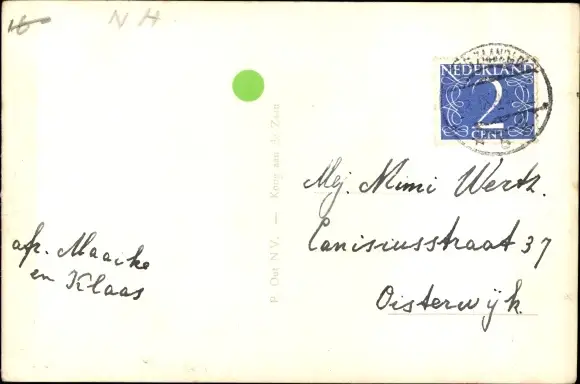 NH
ZAANDIJK
NEDERLAND
2
CENT
P. Out N.V. — Koog aan de Zaan
Mej. Mimi Wertz.
Canisiusstraat 37
Oisterwijk.
afz. Maaike
en Klaas